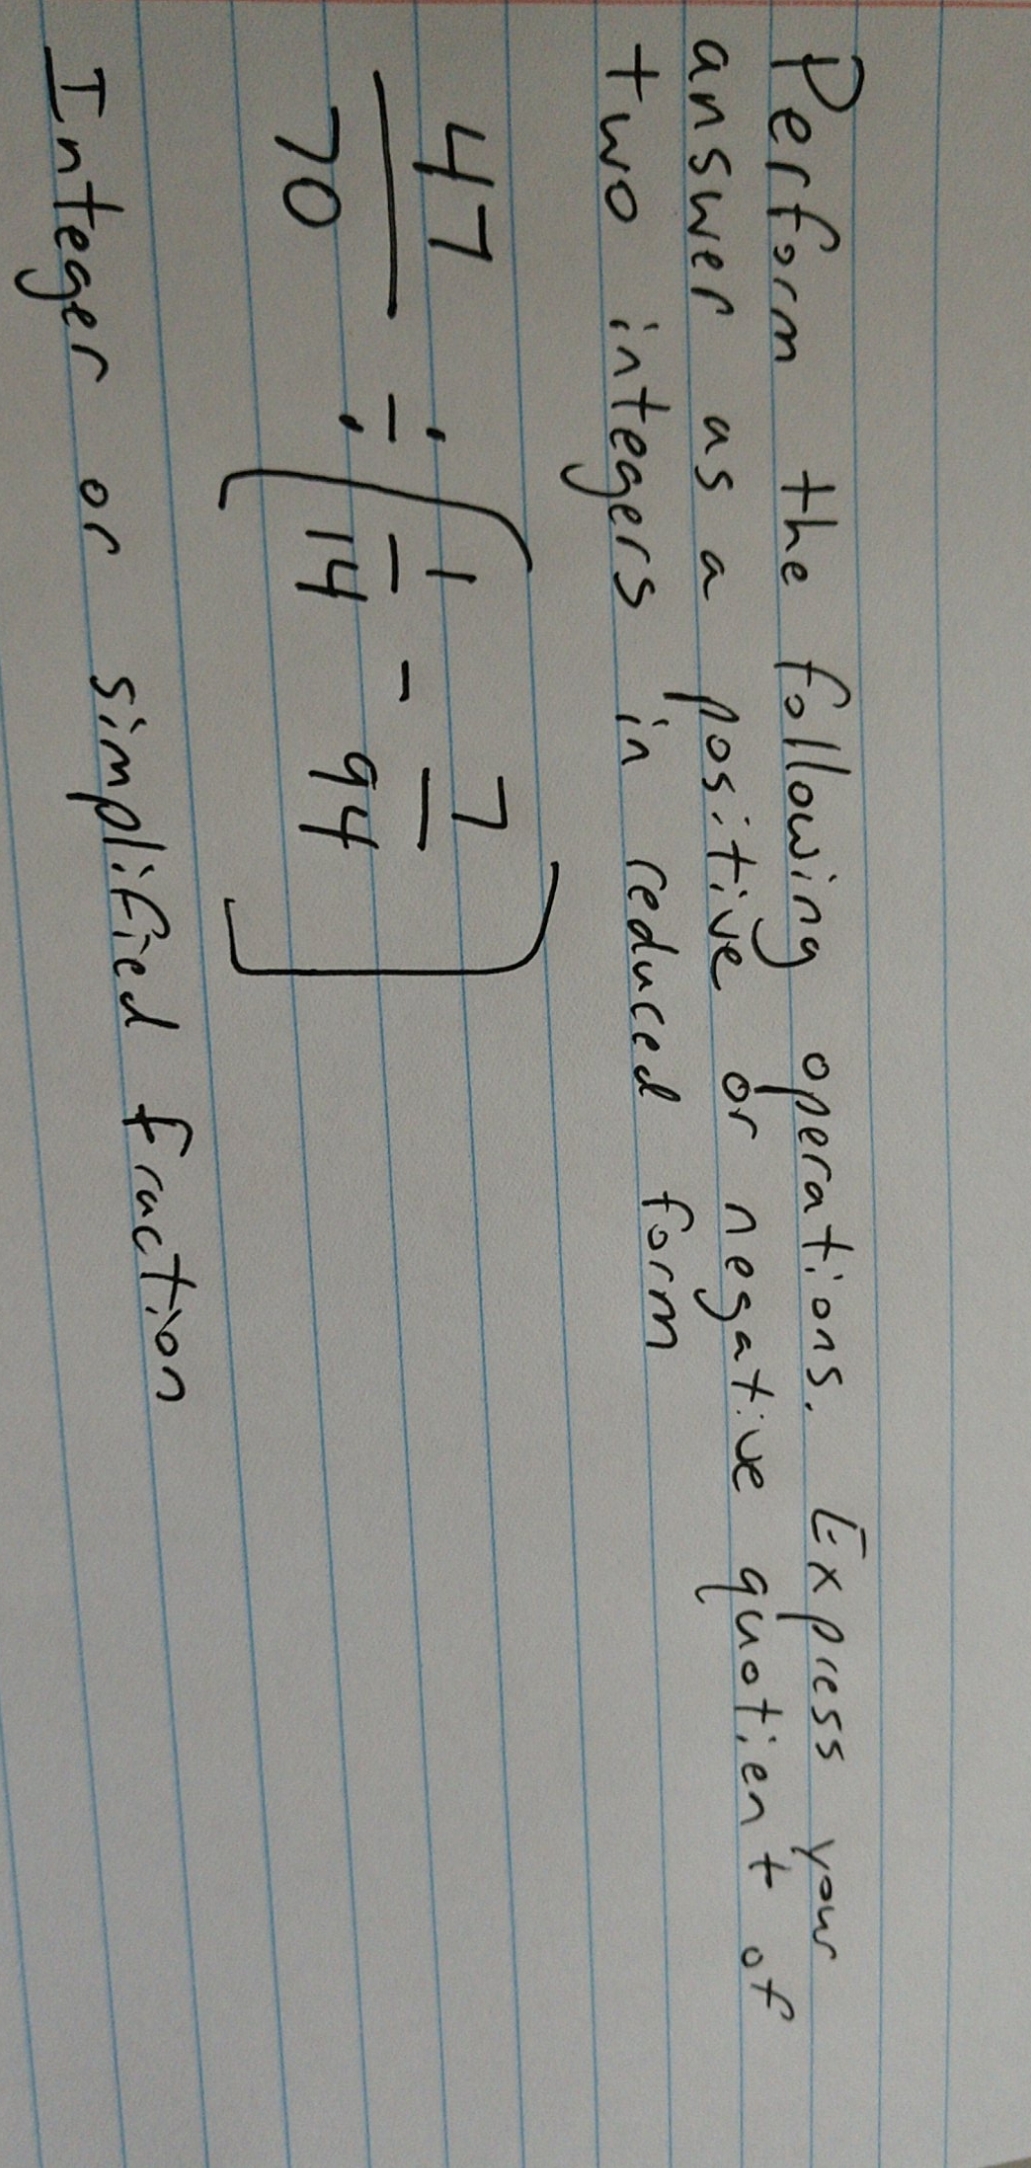 Perform the following operations. Express your
answer as a positive or negative quotient of
two integers in reduced form
47/70 ÷ [1/14 - 7/94]
Integer or simplified fraction